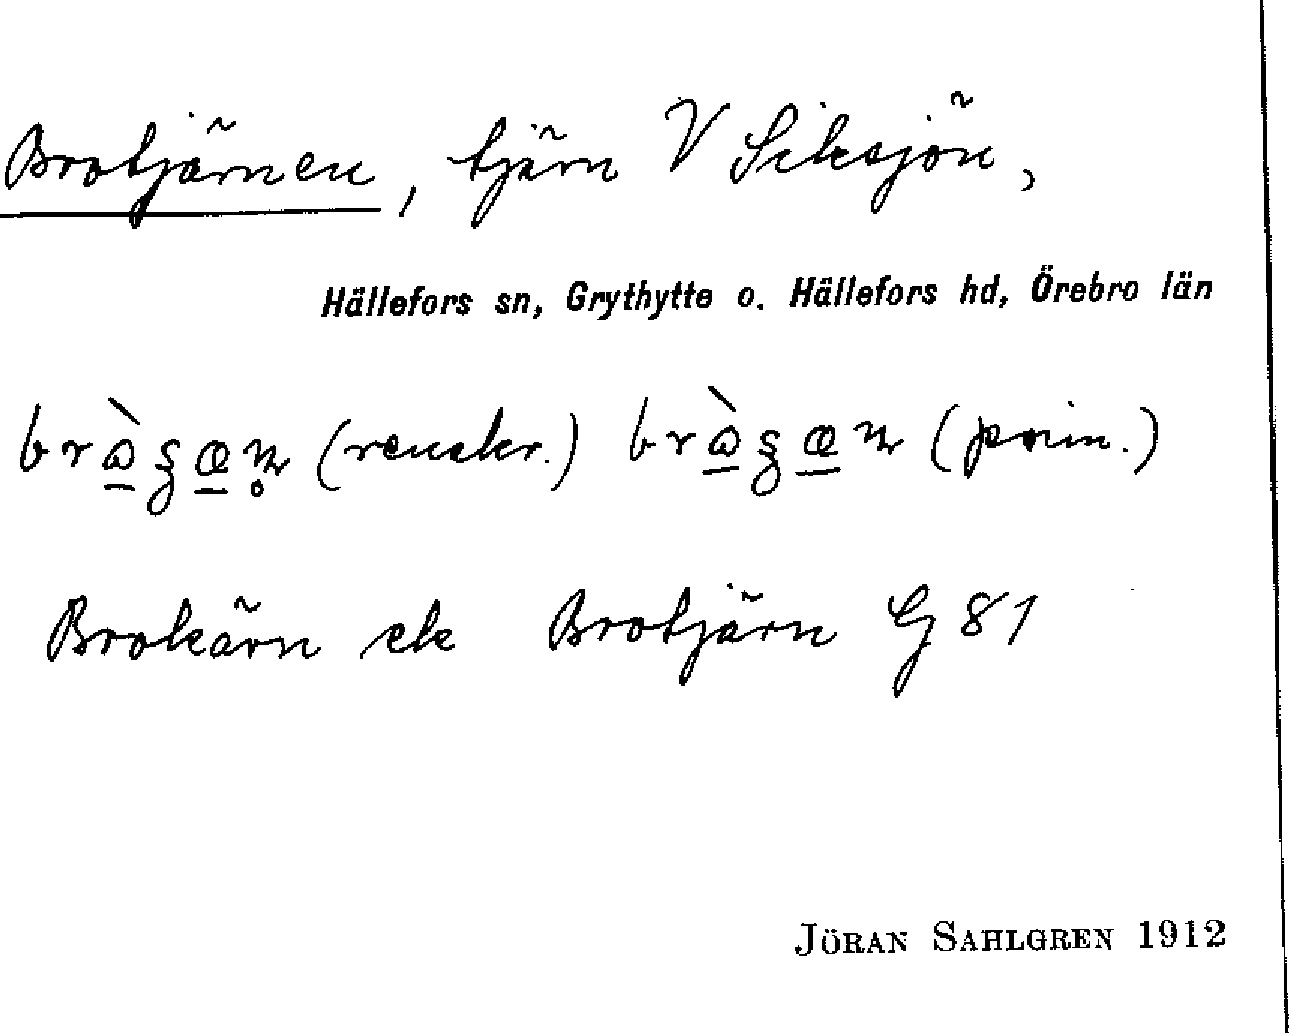 Brotjärnen, tjärn V Siksjön,
Hällefors sn, Grythytte o. Hällefors hd, Örebro län
(renskr.) (prim.)
Brokärn ek Brotjärn G 81
JÖRAN SAHLGREN 1912